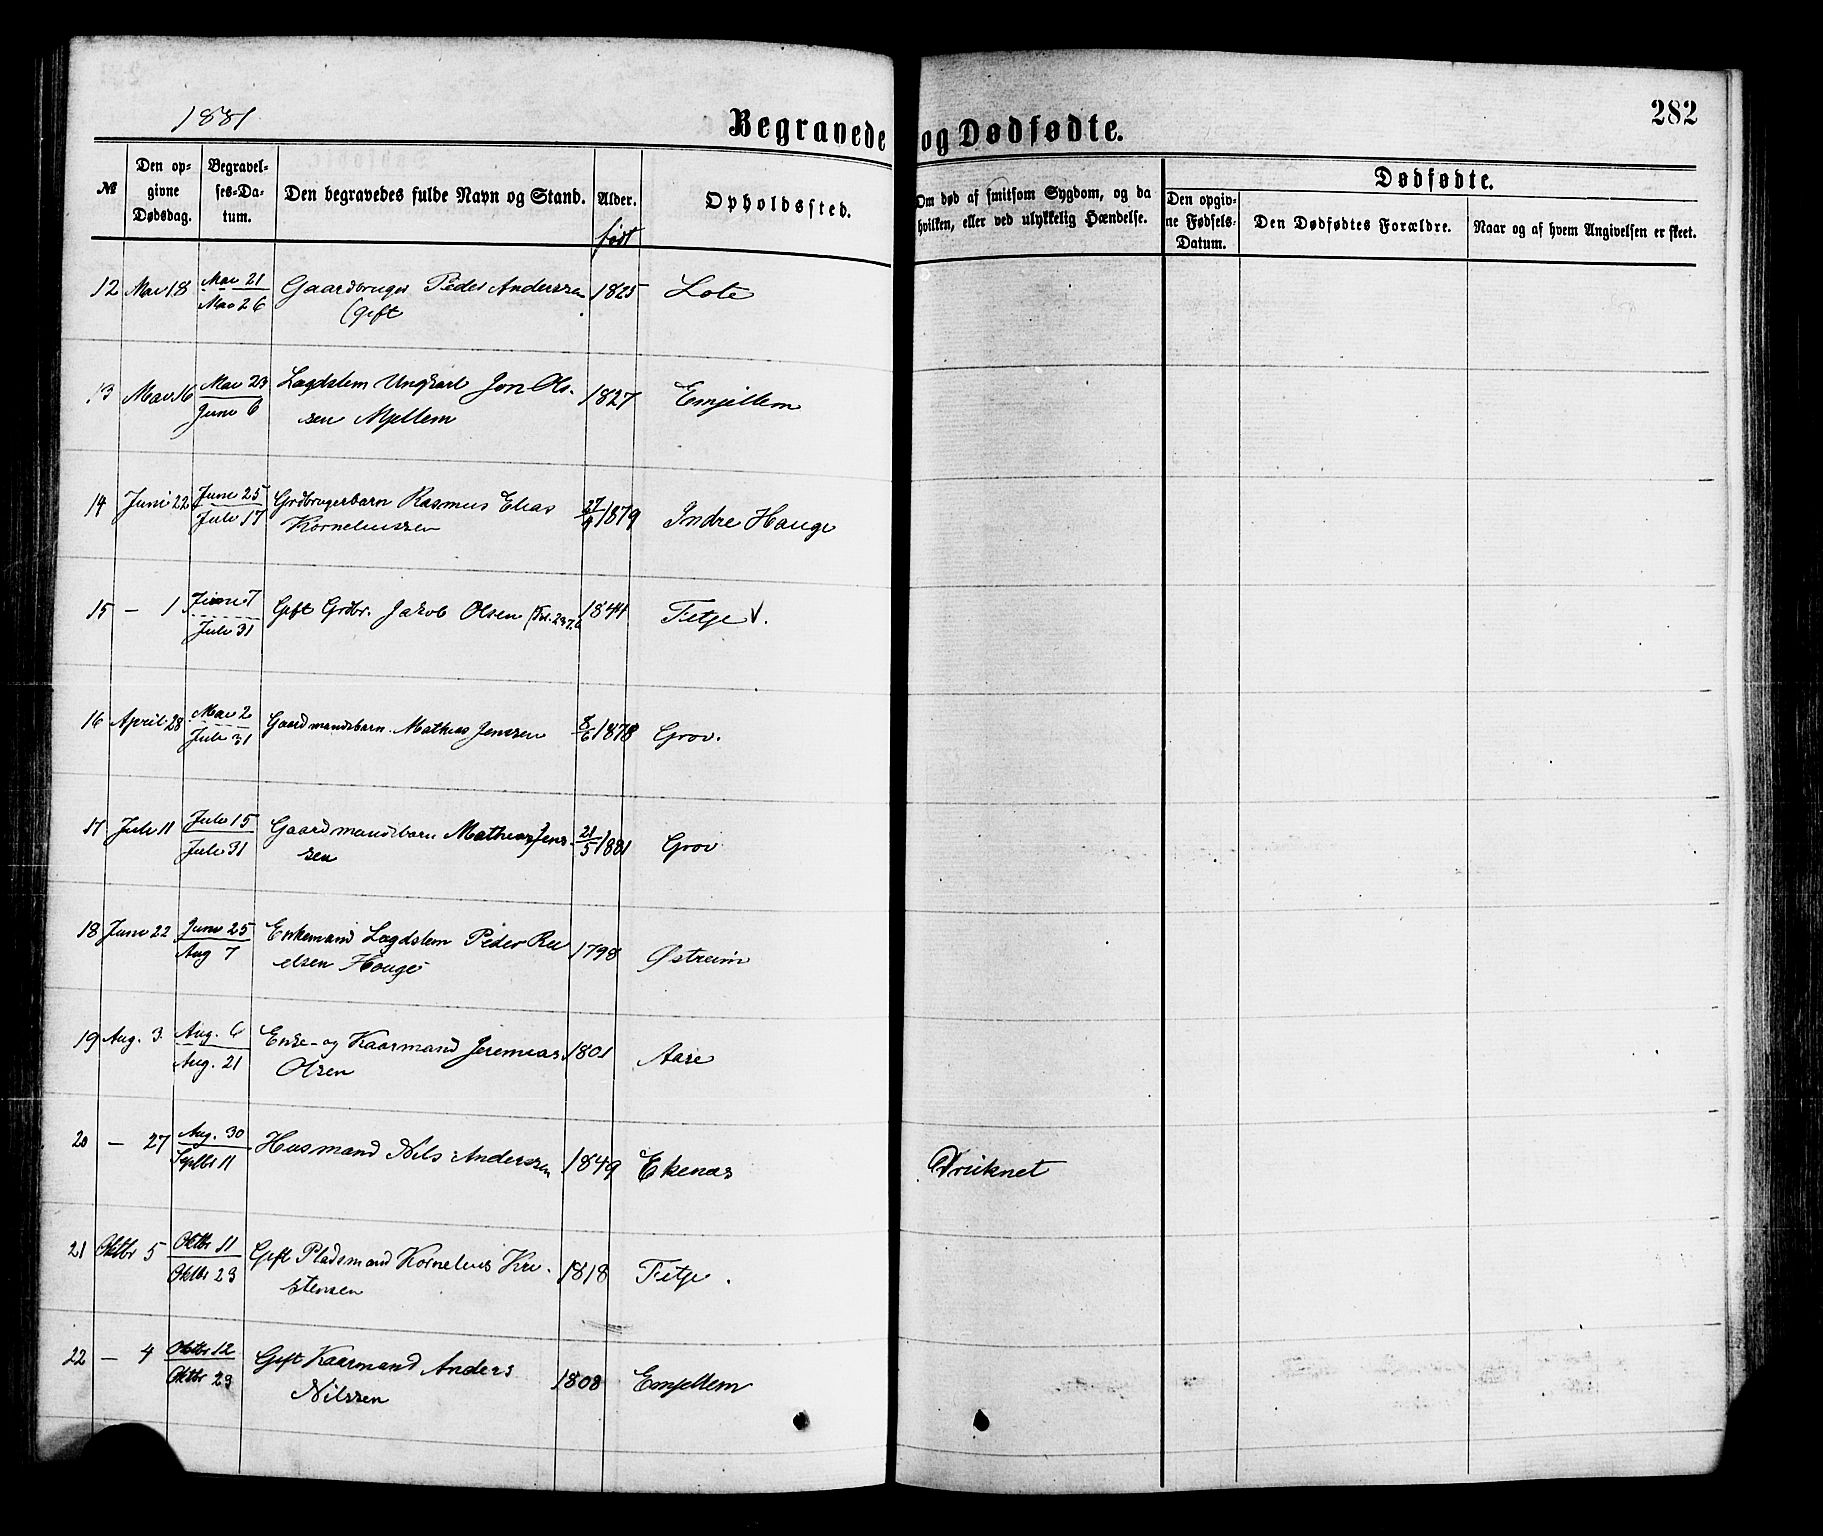 1881.
Begravede og Dødfødte.
282
№
Den op-
givne
Dødsdag.
Begravel-
ses-Da-
tum.
Den begravedes fulde Navn og Stand.
Alder.
født
Opholdssted.
Om død af smitsom Sygdom, og da
hvilken, eller ved ulykkelig Hændelse.
Dødfødte.
Den opgiv-
ne Fødsels-
Datum.
Den Dødfødtes Forældre.
Naar og af hvem Angivelsen er skeet.
12 Mai 18 Mai 21 Gaardbruger Peder Anderssen 1825 Lote
Mai 26 (gift
13 Mai 16 Mai 23 Lægdslem Ungkarl Jon Ols- 1827 Emjellem
Juni 6 sen Mjellem
14 Juni 22 Juni 25 Grdbrugerbarn Rasmus Elias 27/4 1879 Indre Hauge
Juli 17 Korneliussen
15 — 1 Juni 7 Gift Grdbr. Jakob Olsen 1844 Fitje
Juli 31
16 April 28 Mai 2 Gaardmandsbarn Mathias Jenssen 8/6 1878 Grov.
Juli 31
17 Juli 11 Juli 15 Gaardmandsbarn Mathias Jens- 21/5 1881 Grov
Juli 31 sen
18 Juni 22 Juni 25 Enkemand Lægdslem Peder 1798 Østreim
Aug 7 elsen Houge
19 Aug. 3. Aug. 6 Enke- og Kaarmand Jeremias 1801 Aase
Aug. 21 Olsen
20 — 27 Aug. 30 Husmand Nils Anderssen 1849 Ekenæs Druknet
Septbr 11
21 Oktbr 5 Oktbr 11 Gift Pladsmand Kornelius Kri- 1818 Fitje.
Oktbr 23 stensen
22 — 4 Oktbr 12 Gift Kaarmand Anders 1808 Emjellem
Oktbr 23 Nilssen